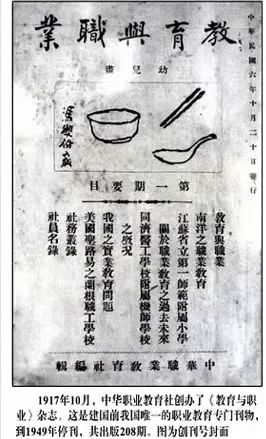 中華民國六年十月二十日發行
教育與職業
幼兒畫
第一期要目
教育與職業
南洋之職業教育
江蘇省立第一師範附屬小學
關於職業教育之過去未來
同濟醫工學校附屬機師學校
之概況
我國之實業教育問題
美國聖路易之蘭根職工學校
社務叢錄
社員名錄
中華職業教育社編輯
1917年10月，中华职业教育社创办了《教育与职
业》杂志。这是建国前我国唯一的职业教育专门刊物，
到1949年停刊，共出版208期。图为创刊号封面